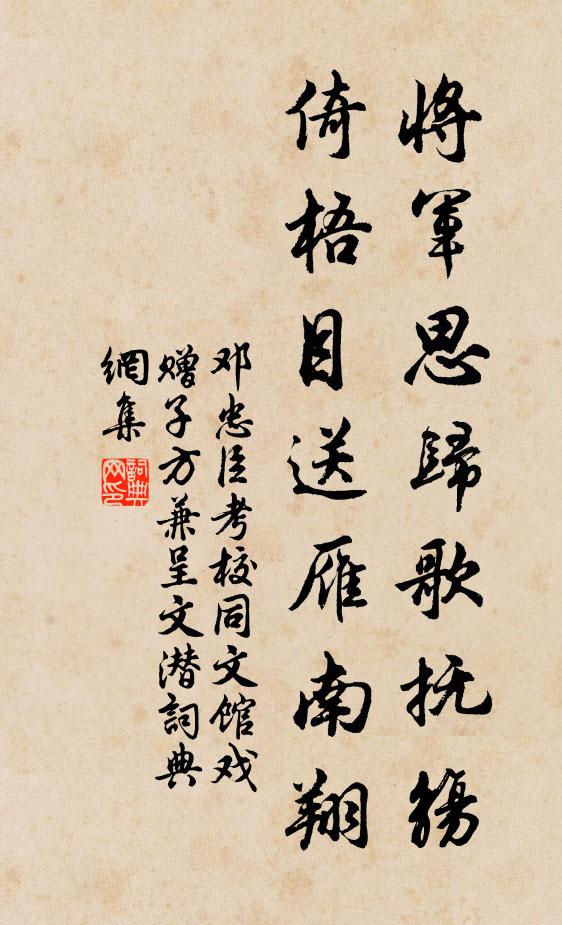 將軍思歸歌抚觞
倚梧目送雁南翔
邓忠臣考校同文馆戏
赠子方兼呈文潜詞典
網集
詞典网印